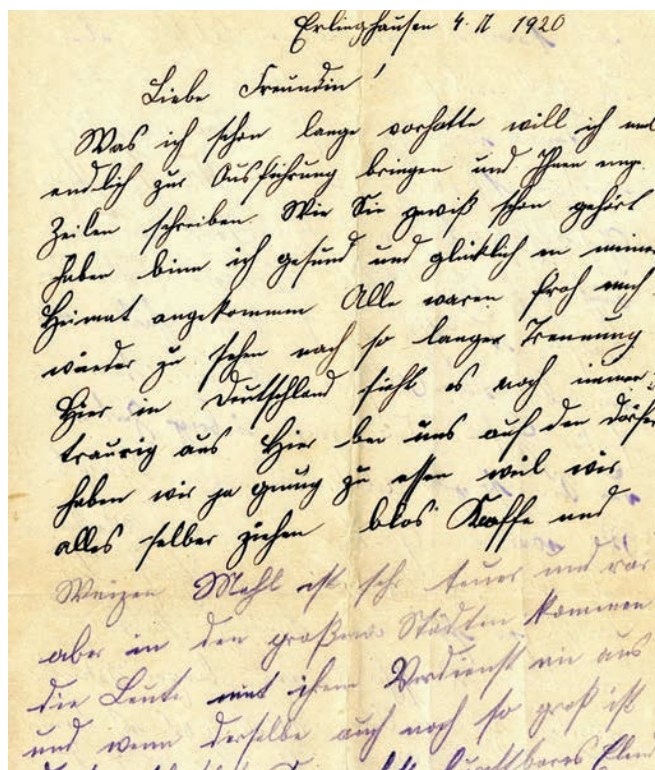 Erlinghausen 4. II 1920
Liebe Freundin!
Was ich schon lange vorhatte will ich mal
endlich zur Ausführung bringen und Ihnen einge
Zeilen schreiben Wie Sie gewiß schon gehört
haben binn ich gesund und glücklich in meiner
Heimat angekommen Alle waren froh mich
wieder zu sehen nach so langer Trennung
Hier in Deutschland sieht es noch immer
traurig aus Hier bei uns auf den Dörfer
haben wir ja genug zu essen weil wir
alles selber ziehen blos Kaffe und
Weizen Mehl ist sehr teuer und rar
aber in den großen Städten kommen
die Leute mit ihrem Verdienst nie aus
und wenn derselbe auch noch so groß ist
furchtbares Elend